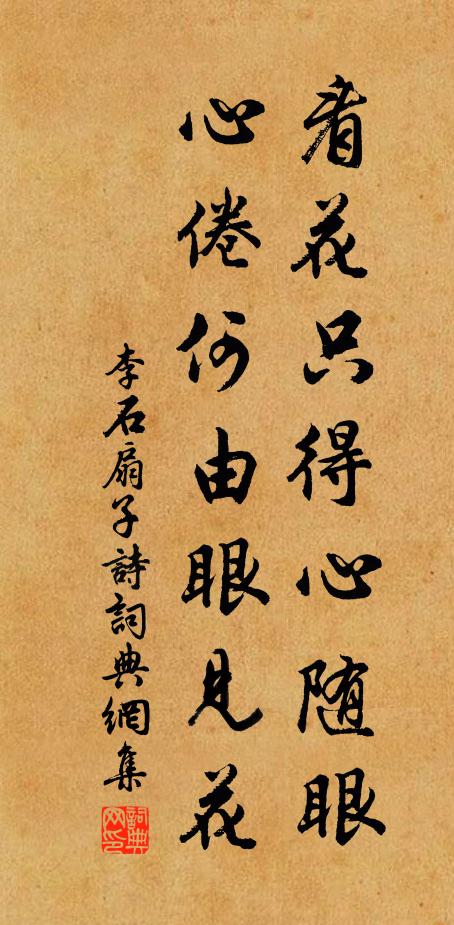 看花只得心随眼
心倦何由眼見花
李石扇子詩詞典網集
詞典网印